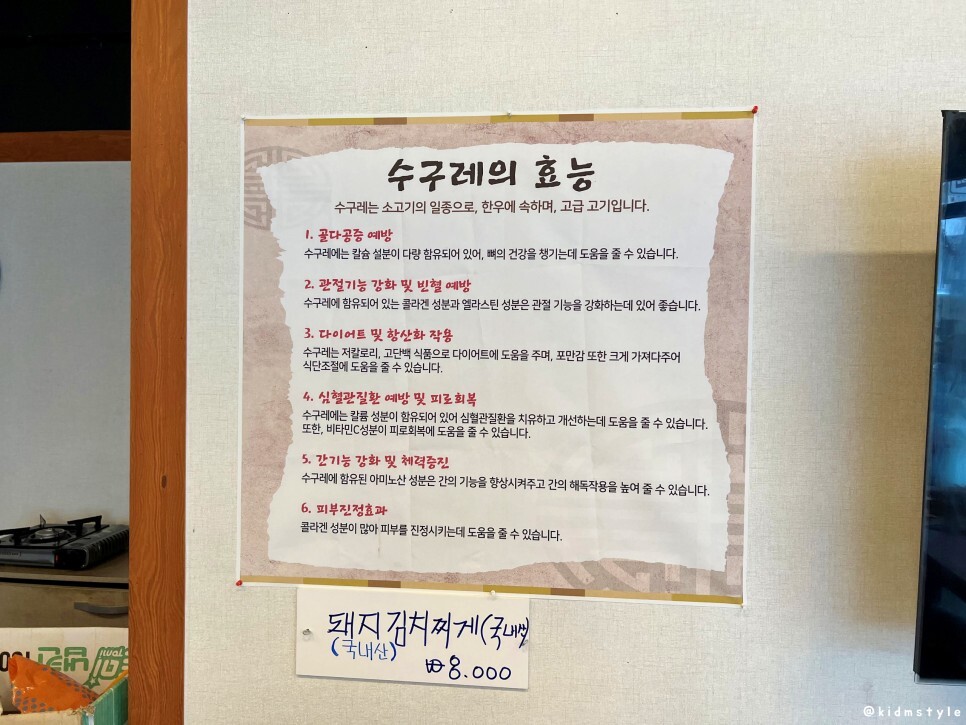 수구레의 효능
수구레는 소고기의 일종으로, 한우에 속하며, 고급 고기입니다.
1. 골다공증 예방
수구레에는 칼슘 설분이 다량 함유되어 있어, 뼈의 건강을 챙기는데 도움을 줄 수 있습니다.
2. 관절기능 강화 및 빈혈 예방
수구레에 함유되어 있는 콜라겐 성분과 엘라스틴 성분은 관절 기능을 강화하는데 있어 좋습니다.
3. 다이어트 및 항산화 작용
수구레는 저칼로리, 고단백 식품으로 다이어트에 도움을 주며, 포만감 또한 크게 가져다주어
식단조절에 도움을 줄 수 있습니다.
4. 심혈관질환 예방 및 피로회복
수구레에는 칼륨 성분이 함유되어 있어 심혈관질환을 치유하고 개선하는데 도움을 줄 수 있습니다.
또한, 비타민C성분이 피로회복에 도움을 줄 수 있습니다.
5. 간기능 강화 및 체력증진
수구레에 함유된 아미노산 성분은 간의 기능을 향상시켜주고 간의 해독작용을 높여 줄 수 있습니다.
6. 피부진정효과
콜라겐 성분이 많아 피부를 진정시키는데 도움을 줄 수 있습니다.
돼지 김치찌게(국내산)
(국내산)
₩8.000
@kidmstyle